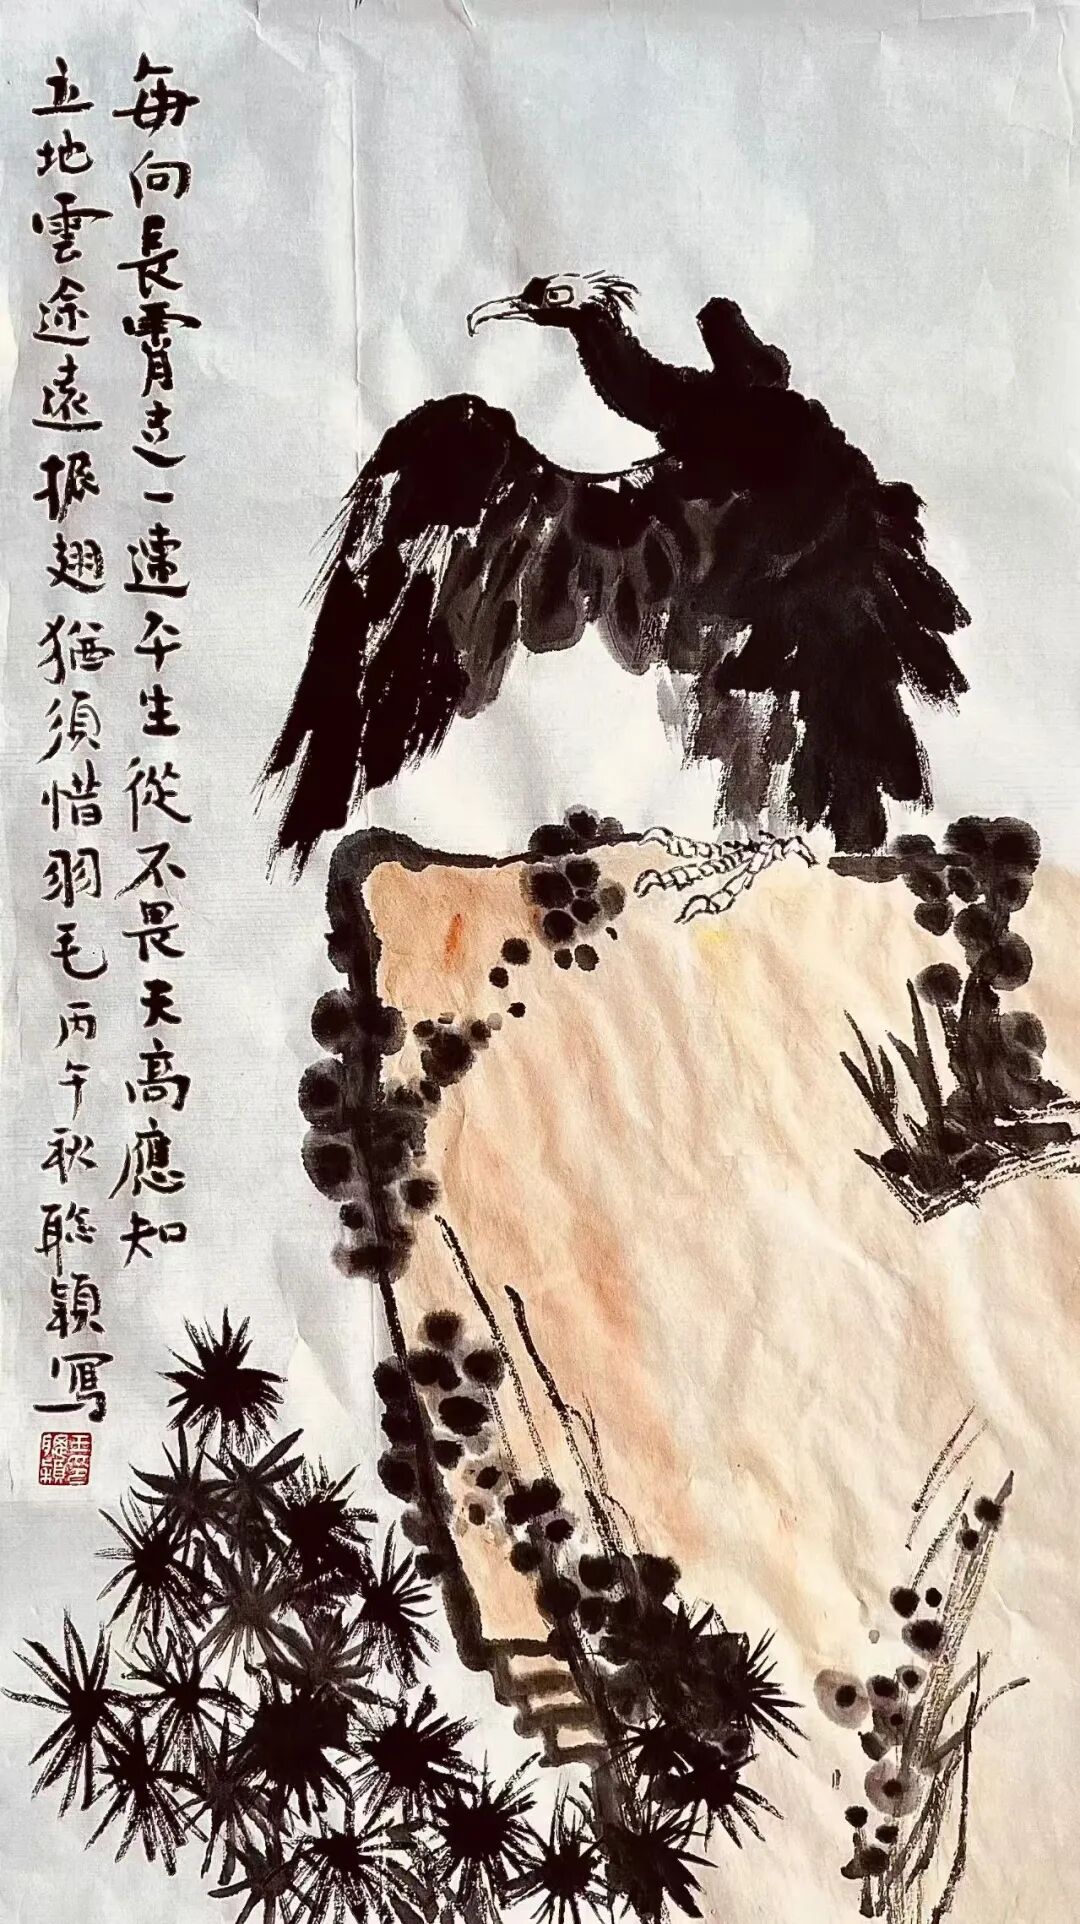 每向長霄走一遭平生從不畏天高應知
立地雲途遠振翅猶須惜羽毛丙午秋聡穎寫